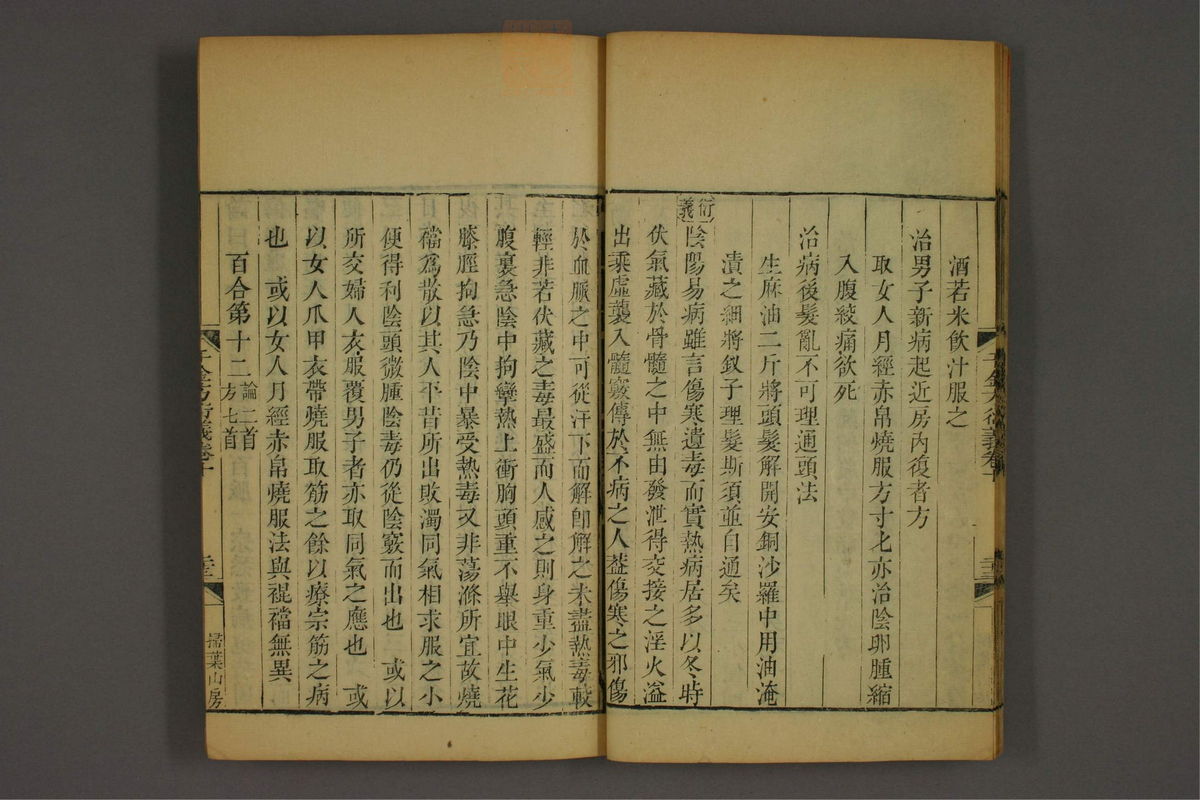 酒若米飲汁服之
治男子新病起近房內復者方
取女人月經赤帛燒服方寸匕亦治陰卵腫縮
入腹絞痛欲死
治病後髮亂不可理通頭法
生麻油二斤將頭髮解開安銅沙羅中用油淹
漬之細將釵子理髮斯須並自通矣
衍義
陰陽易病雖言傷寒遺毒而實熱病居多以冬時
伏氣藏於骨髓之中無由發泄得交接之淫火溢
出乘虛襲入髓竅傳於不病之人葢傷寒之邪傷
於血脈之中可從汗下而解卽解之未盡熱毒較
輕非若伏藏之毒最盛而人感之則身重少氣少
腹裏急陰中拘攣熱上衝胸頭重不舉眼中生花
膝脛拘急乃陰中暴受熱毒又非蕩滌所宜故燒
襠爲散以其人平昔所出敗濁同氣相求服之小
便得利陰頭微腫陰毒仍從陰竅而出也 或以
所交婦人衣服覆男子者亦取同氣之應也 或
以女人爪甲衣帶燒服取筋之餘以療宗筋之病
也 或以女人月經赤帛燒服法與裩襠無異
百合第十二 論二首 方七首
千金方衍義卷十
三十三
掃葉山房